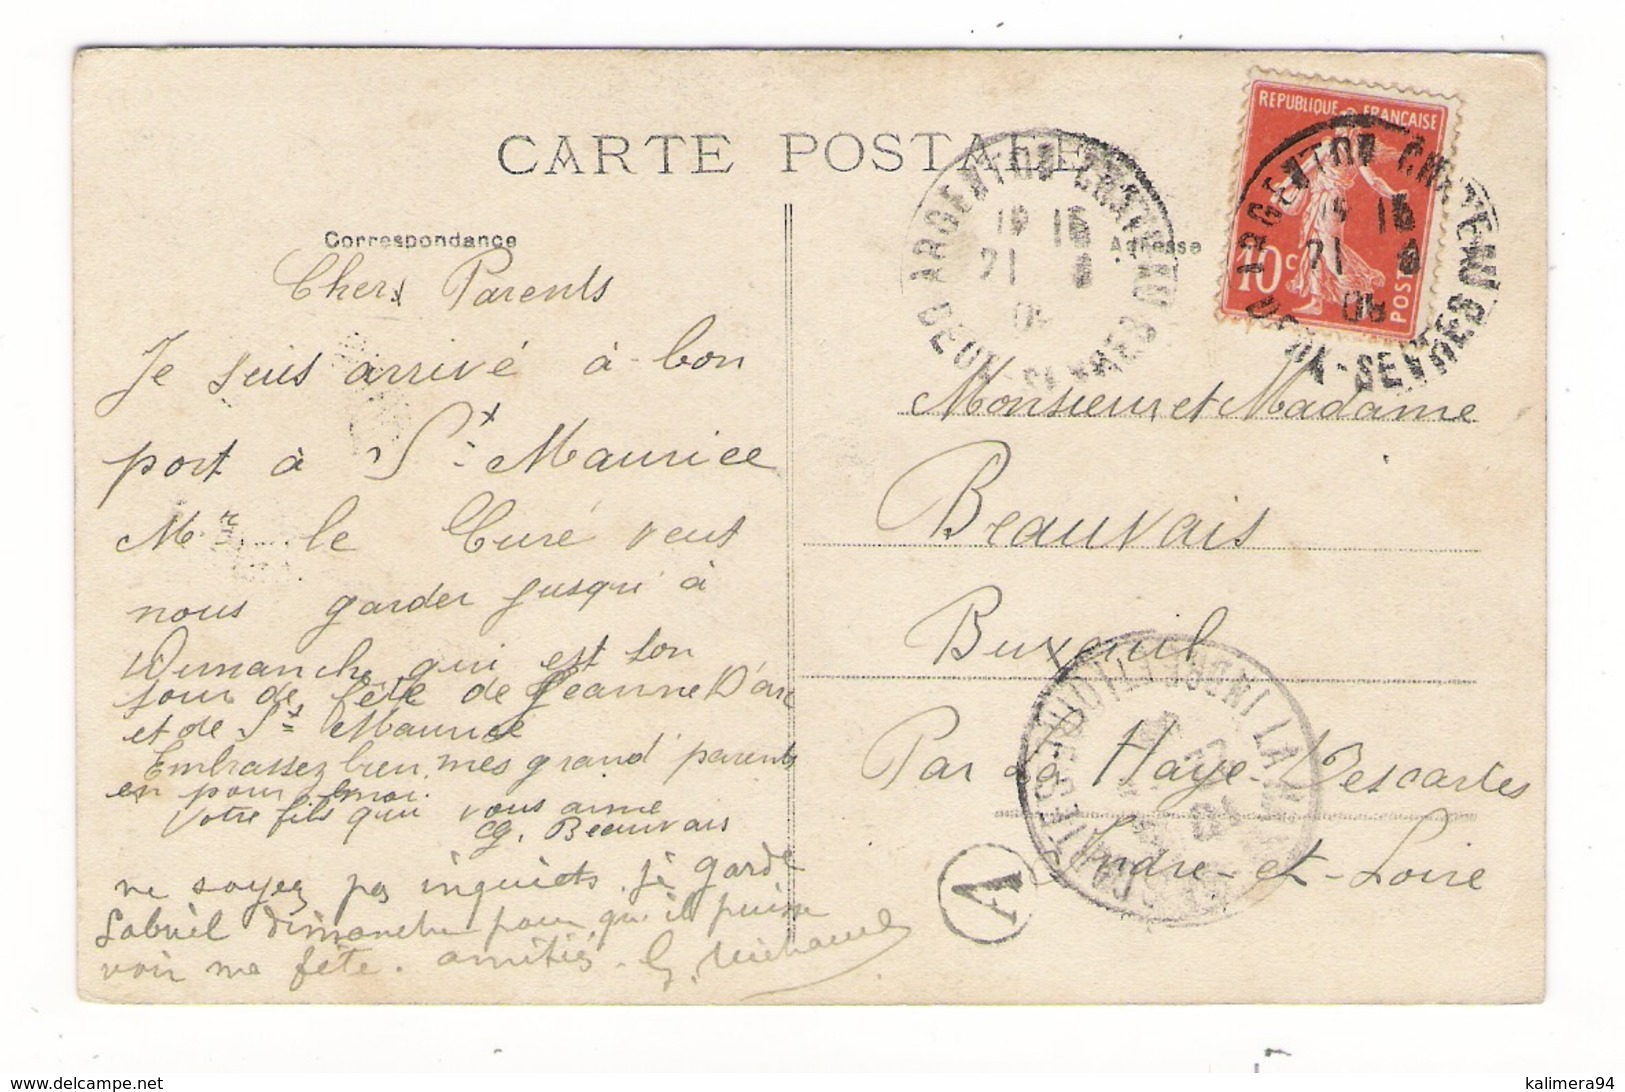 CARTE POSTALE
Correspondance
Chers Parents
Je suis arrivé à bon
port à St Maurice
Mr le Curé veut
nous garder jusqu'à
Dimanche qui est son
jour de fête de Jeanne D'arc
et de St Maurice
Embrassez bien mes grand parents
en pour moi.
Votre fils qui vous aime
G. Beauvais
ne soyez pas inquiets. je garde
Gabriel dimanche pour qu'il puisse
voir ma fête. amitiés.
Adresse
REPUBLIQUE FRANÇAISE
10c
POSTES
ARGENTON CHATEAU
DEUX-SEVRES
21
ARGENTON CHATEAU
DEUX-SEVRES
21
Monsieur et Madame
Beauvais
Buxeuil
Par La Haye-Descartes
Indre-et-Loire
A
kalimera94 / www.delcampe.net